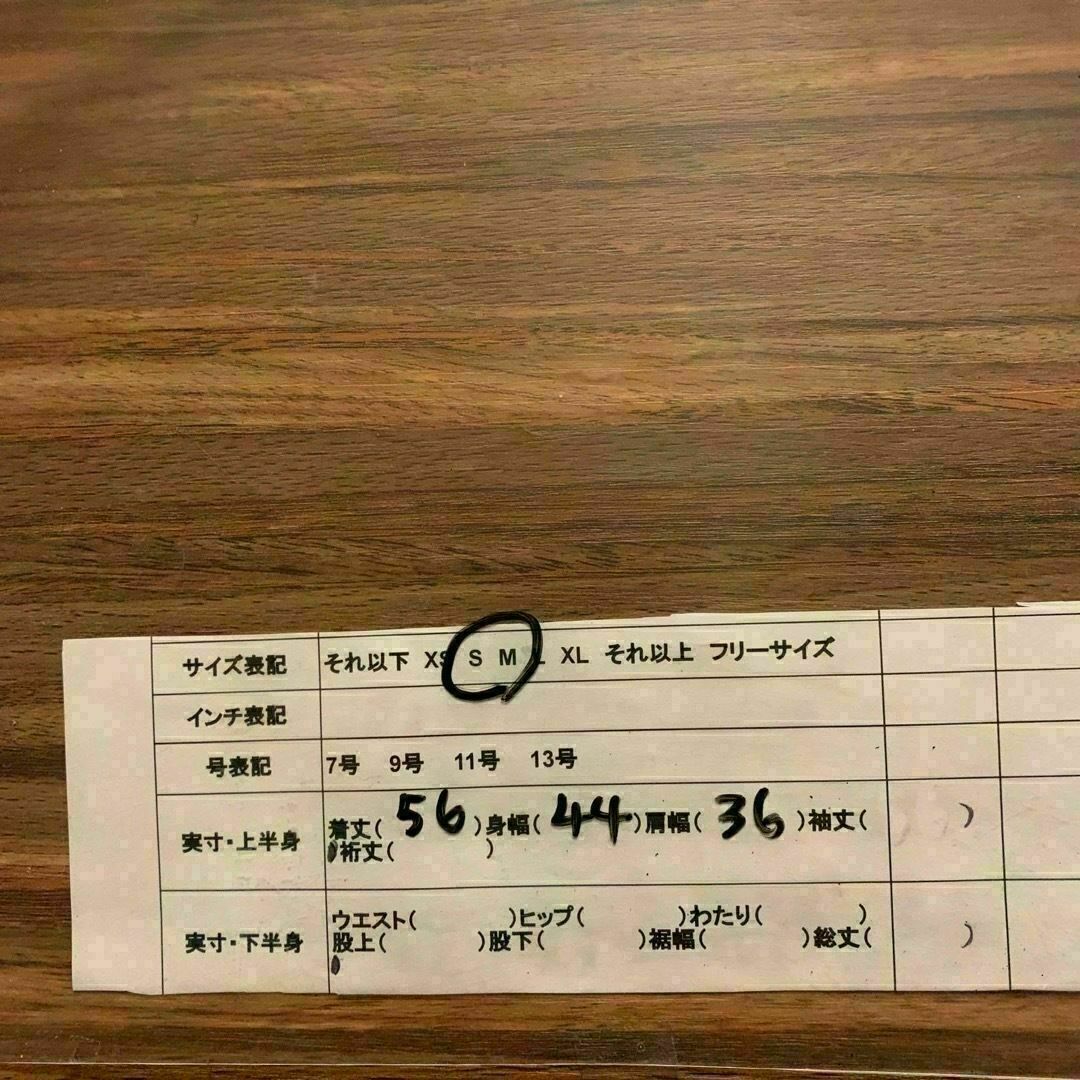 サイズ表記 それ以下 XS S M L XL それ以上 フリーサイズ
インチ表記
号表記 7号 9号 11号 13号
実寸・上半身 着丈( 56 )身幅( 44 )肩幅( 36 )袖丈( )
)裄丈( )
実寸・下半身 ウエスト( )ヒップ( )わたり( )
股上( )股下( )裾幅( )総丈( )
)